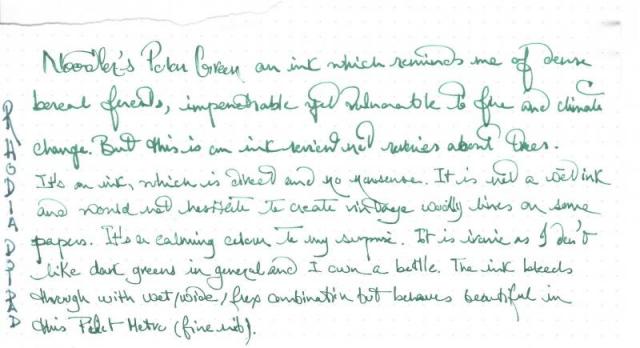 Noodler's Polar Green an ink which reminds me of dense
boreal forests, impenetrable yet vulnarable to fire and climate
change. But this is an ink review not reveries about trees.
It's an ink, which is direct and no nonsense. It is not a wet ink
and would not hesitate to create vintage woolly lines on some
papers. It's a calming colour to my surprise. It is ironic as I don't
like dark greens in general and I own a bottle. The ink bleeds
through with wet/wide/flex combination but behaves beautiful in
this Pilot Metro (fine nib).
RHODIA DPAD